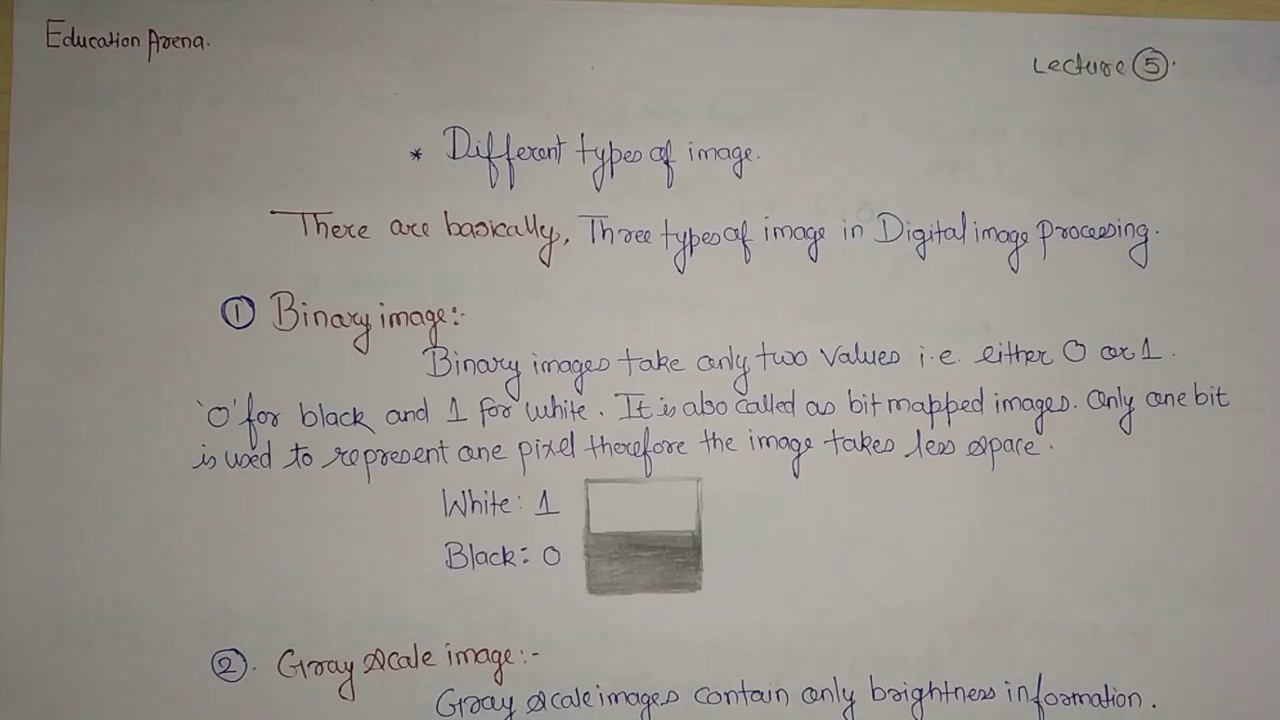 Education Arena.
Lecture 5.
* Different types of image.
There are basically, Three types of image in Digital image processing.
1 Binary image:-
Binary images take only two values i.e. either 0 or 1.
'0' for black and 1 for white. It is also called as bit mapped images. Only one bit
is used to represent one pixel therefore the image takes less space.
White: 1
Black: 0
2. Gray scale image:-
Gray scale images contain only brightness information.